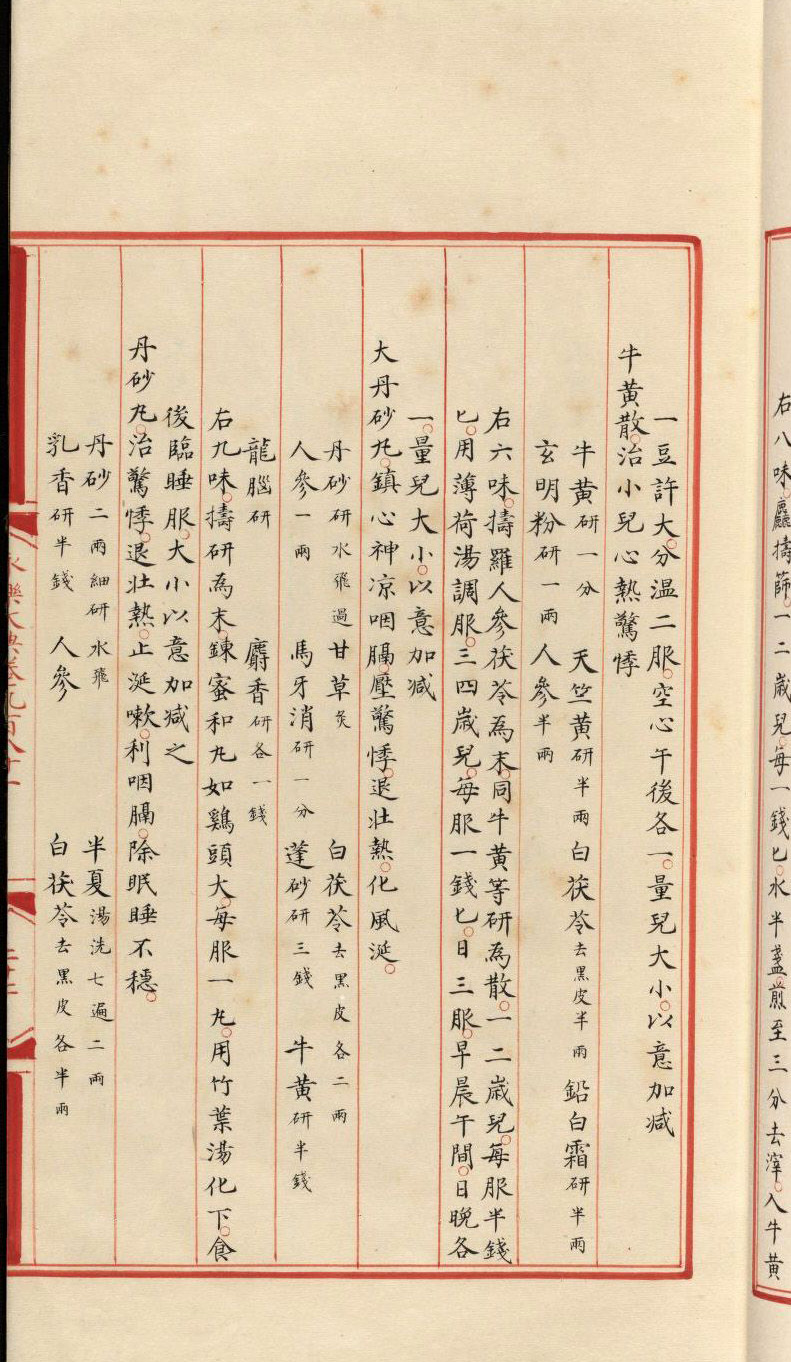 右八味。麤擣篩。一二歲兒。每一錢匕。水半盞。煎至三分去滓。入牛黄
一豆許大。分溫二服。空心午後各一。量兒大小。以意加减
牛黄散。治小兒心熱驚悸
牛黄研一分 天竺黄研半兩 白茯苓去黑皮半兩 鉛白霜研半兩
玄明粉研一兩 人參半兩
右六味。擣羅人參茯苓為末。同牛黄等研為散。一二歲兒。每服半錢
匕。用薄荷湯調服。三四歲兒。每服一錢匕。日三服。早晨午間。日晚各
一。量兒大小。以意加减
大丹砂丸。鎮心神凉咽膈。壓驚悸。退壯熱。化風涎。
丹砂研水飛過 甘草炙 白茯苓去黑皮各二兩
人參一兩 馬牙消研一分 蓬砂研三錢 牛黄研半錢
龍腦研 麝香研各一錢
右九味。擣研為末。鍊蜜和丸如鷄頭大。每服一丸。用竹葉湯化下。食
後臨睡服。大小以意加减之
丹砂丸。治驚悸。退壯熱。止涎嗽。利咽膈。除眠睡不穩。
丹砂二兩細研水飛 半夏湯洗七遍二兩
乳香研半錢 人參 白茯苓去黑皮各半兩
永樂大典卷九百八十一